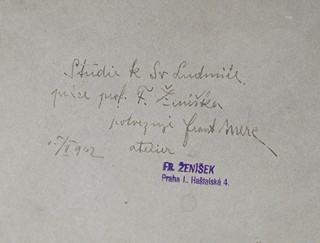 Studie k Sv Ludmile.
práce prof. F. Ženíška
potvrzuje frant
atelier
FR. ŽENÍŠEK
Praha I., Haštalská 4.